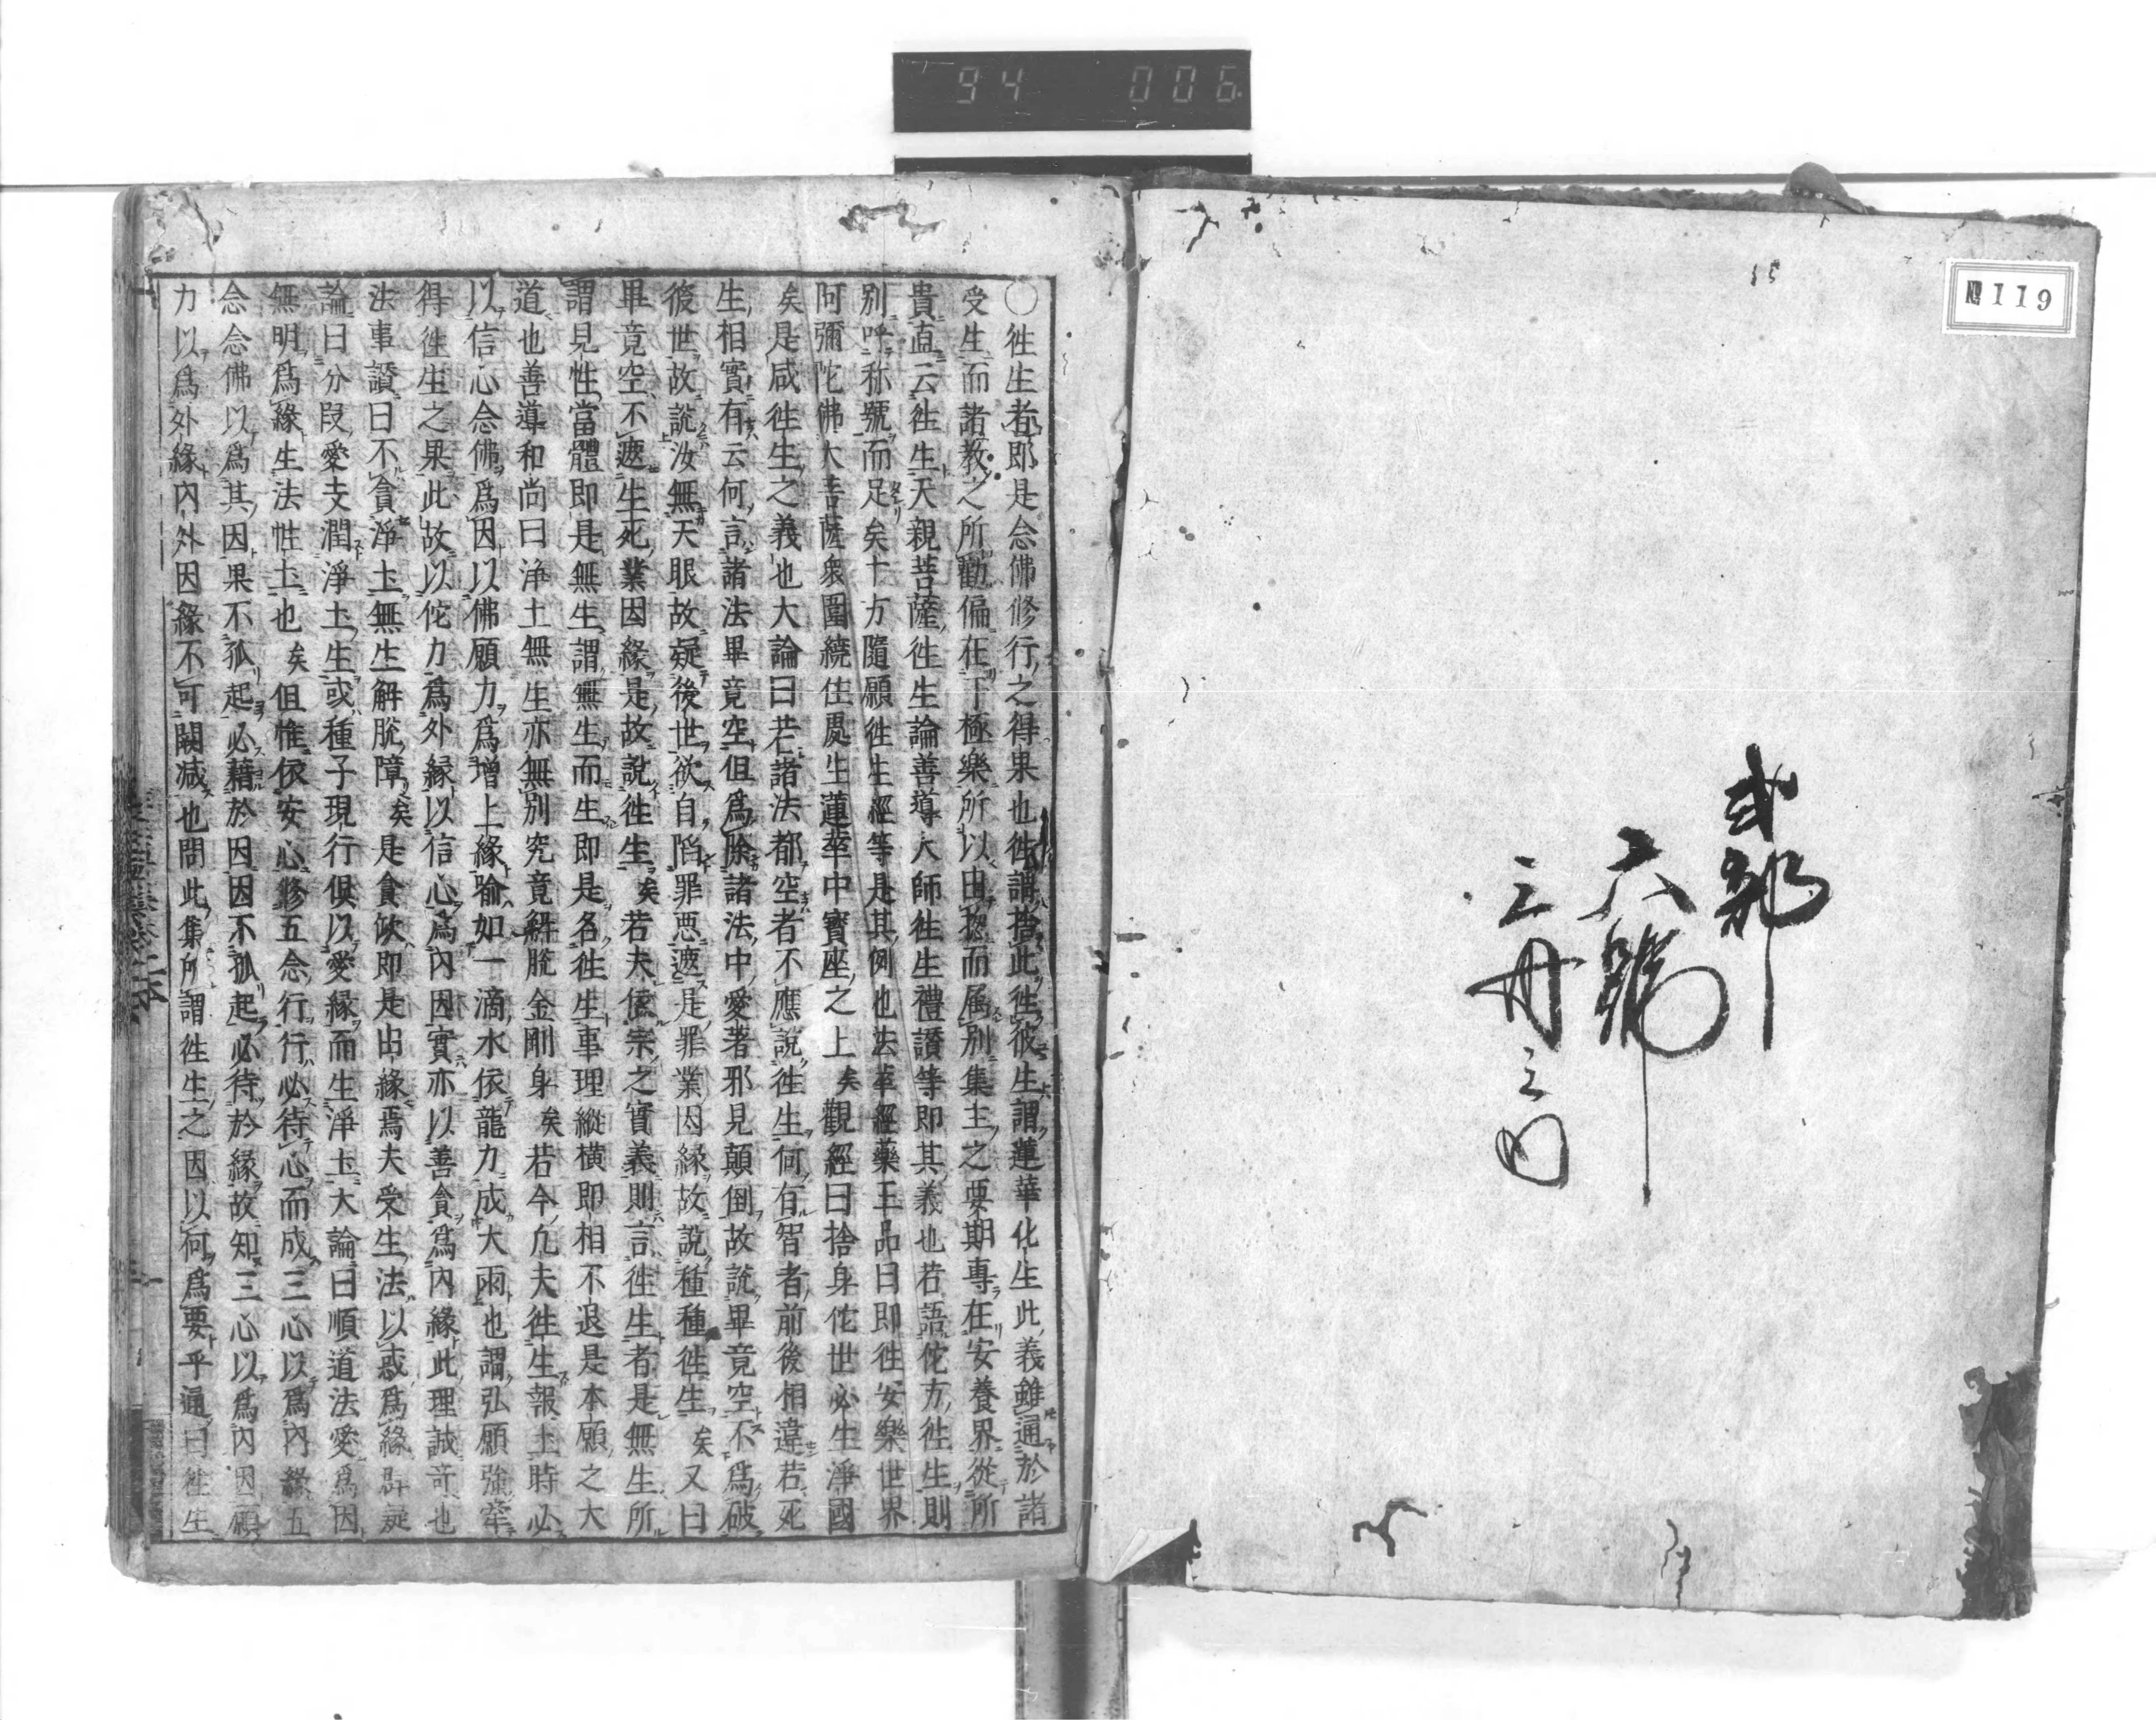 94 006
№119
15
貳部
六號
三册之内
〇徃生者即是念佛修行之得果也徃謂捨此徃彼生謂蓮華化生此義雖通於諸
受生而諸教之所勸偏在下極樂所以由揔而属別集主之要期專在安養界從所
貴直云徃生天親菩薩徃生論善導大師徃生禮讃等即其義也若語佗方徃生則
別呼称號而足矣十方隨願徃生經等是其例也法華經藥王品曰即徃安樂世界
阿彌陀佛大菩薩衆圍繞住處生蓮華中寳座之上矣觀經曰捨身佗世必生淨國
矣是咸徃生之義也大論曰若諸法都空者不應說徃生何有智者前後相違若死
生相實有云何言諸法畢竟空但爲除諸法中愛著邪見顛倒故說畢竟空不爲破
後世故說汝無天眼故疑後世欲自陷罪惡遮是罪業因緣故說種種徃生矣又曰
畢竟空不遮生死業因緣是故說徃生矣若夫依宗之實義則言徃生者是無生所
謂見性當體即是無生謂無生而生即是名徃生事理縱横即相不退是本願之大
道也善導和尚曰淨土無生亦無別究竟解脫金剛身矣若今凢夫徃生報土時必
以信心念佛爲因以佛願力爲增上緣喻如一滴水依龍力成大雨也謂弘願強牽
得徃生之果此故以佗力爲外緣以信心爲内因實亦以善貪爲内緣此理誠奇也
法事讃曰不貪淨土無生解脫障矣是貪欲即是出緣焉夫受生法以惑爲緣
論曰分段愛支潤淨土生或種子現行俱以愛緣而生淨土大論曰順道法愛爲因
無明爲緣生法性土也矣但惟依安心修五念行行必待心而成三心以爲内緣五
念念佛以爲其因果不孤起必藉於因因不孤起必待於緣故知三心以爲内因願
力以爲外緣内外因緣不可闕减也問此集所謂徃生之因以何爲要乎通曰徃生